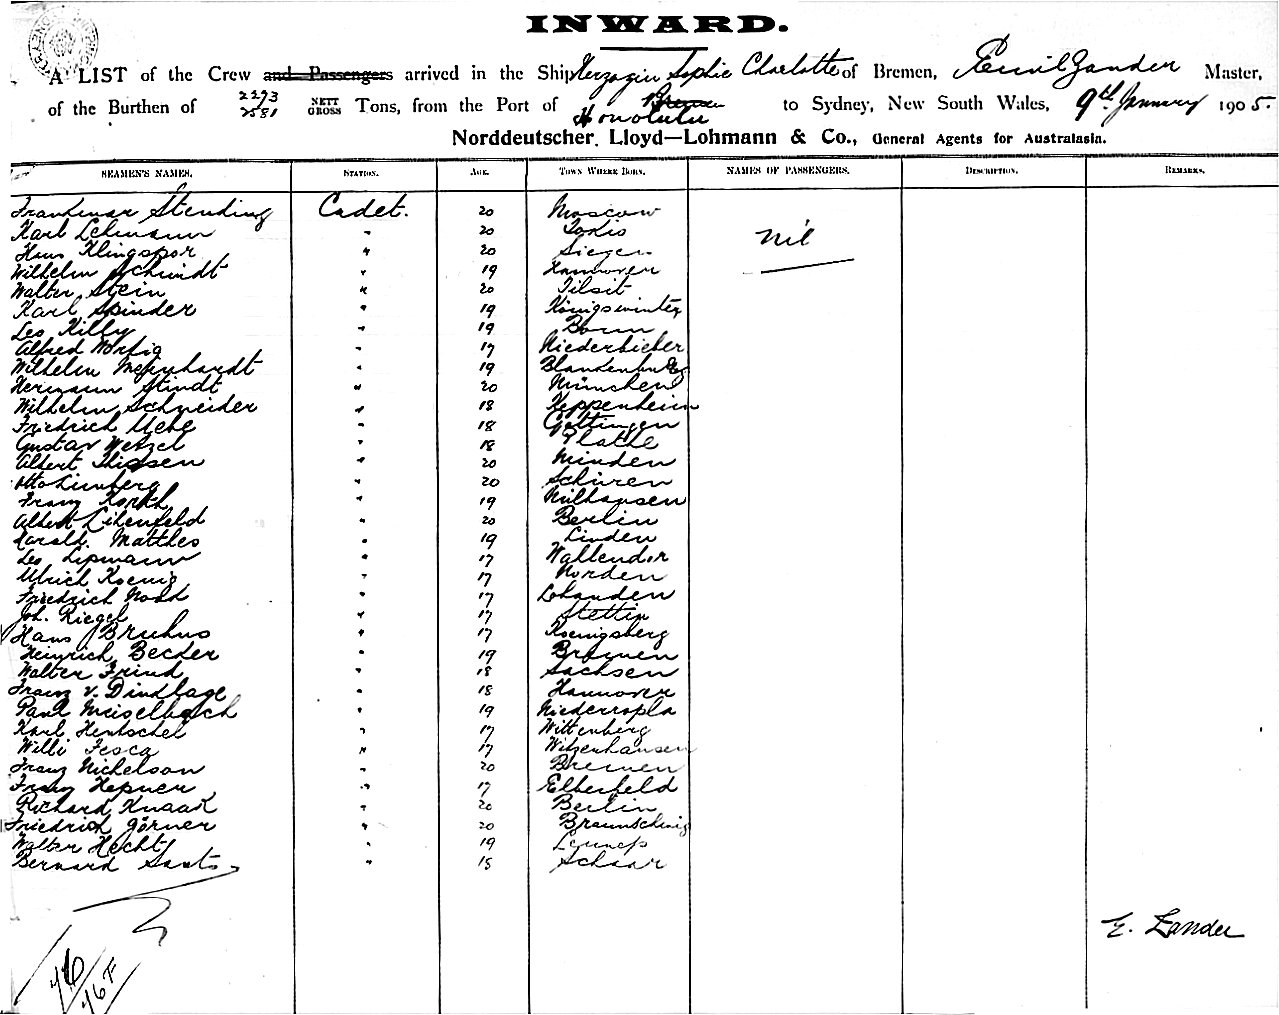 INWARD.
A LIST of the Crew and Passengers arrived in the Ship Herzogin Sophie Charlotte of Bremen, Emil Zander Master,
of the Burthen of 2293 2581 NETT GROSS Tons, from the Port of Bremen Honolulu to Sydney, New South Wales, 9th January 1905.
Norddeutscher Lloyd—Lohmann & Co., General Agents for Australasia.
SEAMEN'S NAMES. STATION. AGE. TOWN WHERE BORN. NAMES OF PASSENGERS. DESCRIPTION. REMARKS.
Stending Cadet. 20 Moscow
Karl Lehmann " 20 Nil
Hans Klingspor " 20 Siegen
Wilhelm Schmidt " 19 Hannover
Walter Stein " 20 Tilsit
Karl Spinder " 19 Königswinter
Leo Killy " 19 Bonn
Alfred Worfig " 17 Niederbieber
Wilhelm Meinhardt " 19 Blandenburg
Hermann Stindt " 20 München
Wilhelm Schneider " 18 Heppenheim
Friedrich Uehe " 18 Göttingen
Gustav Wetzel " 18 Plathe
Albert Thissen " 20 Minden
Otto Limberg " 20 Schüren
Franz Korth " 19 Mülhausen
Albert Lihenfeld " 20 Berlin
Harald Matthes " 19 Linden
Leo Lipmann " 17 Wallendor
Ulrich Koenig " 17 Norden
Friedrich Noad " 17
Joh. Riegel " 17 Stettin
Hans Bruhns " 17 Koenigsberg
Heinrich Becker " 19 Bremen
Walter Frind " 18 Sachsen
Franz v. Dindlage " 18 Hannover
Paul Meiselbach " 19 Niederropla
Karl Hentschel " 17 Wittenberg
Willi Fesca " 17 Witzenhausen
Franz Nichelson " 20 Bremen
Franz Hepner " 17 Elberfeld
Richard Knaak " 20 Berlin
Friedrich Görner " 20 Braunschweig
Walter Hecht " 19 Lennep
Bernard Sants " 15 Schaar
E. Zander
76